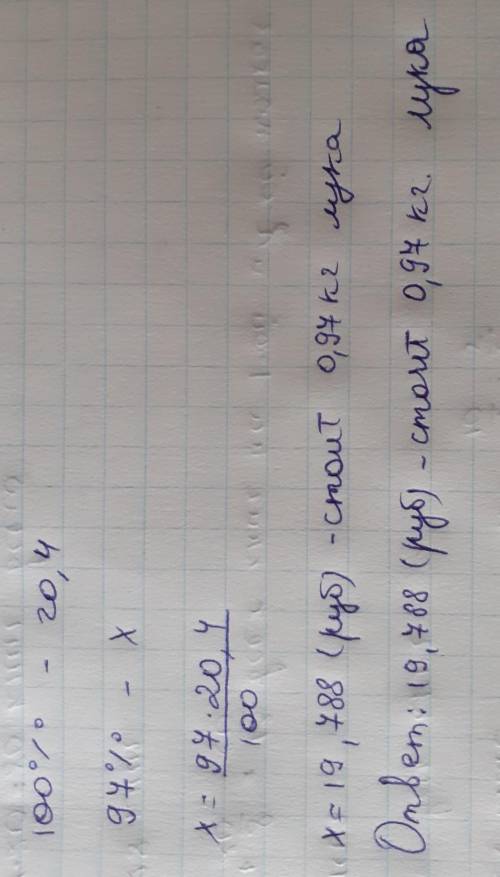 100% - 20,4
97% - x
x = 97·20,4
100
x = 19,788 (руб) - стоит 0,97 кг лука
Ответ: 19,788 (руб) - стоит 0,97 кг. лука